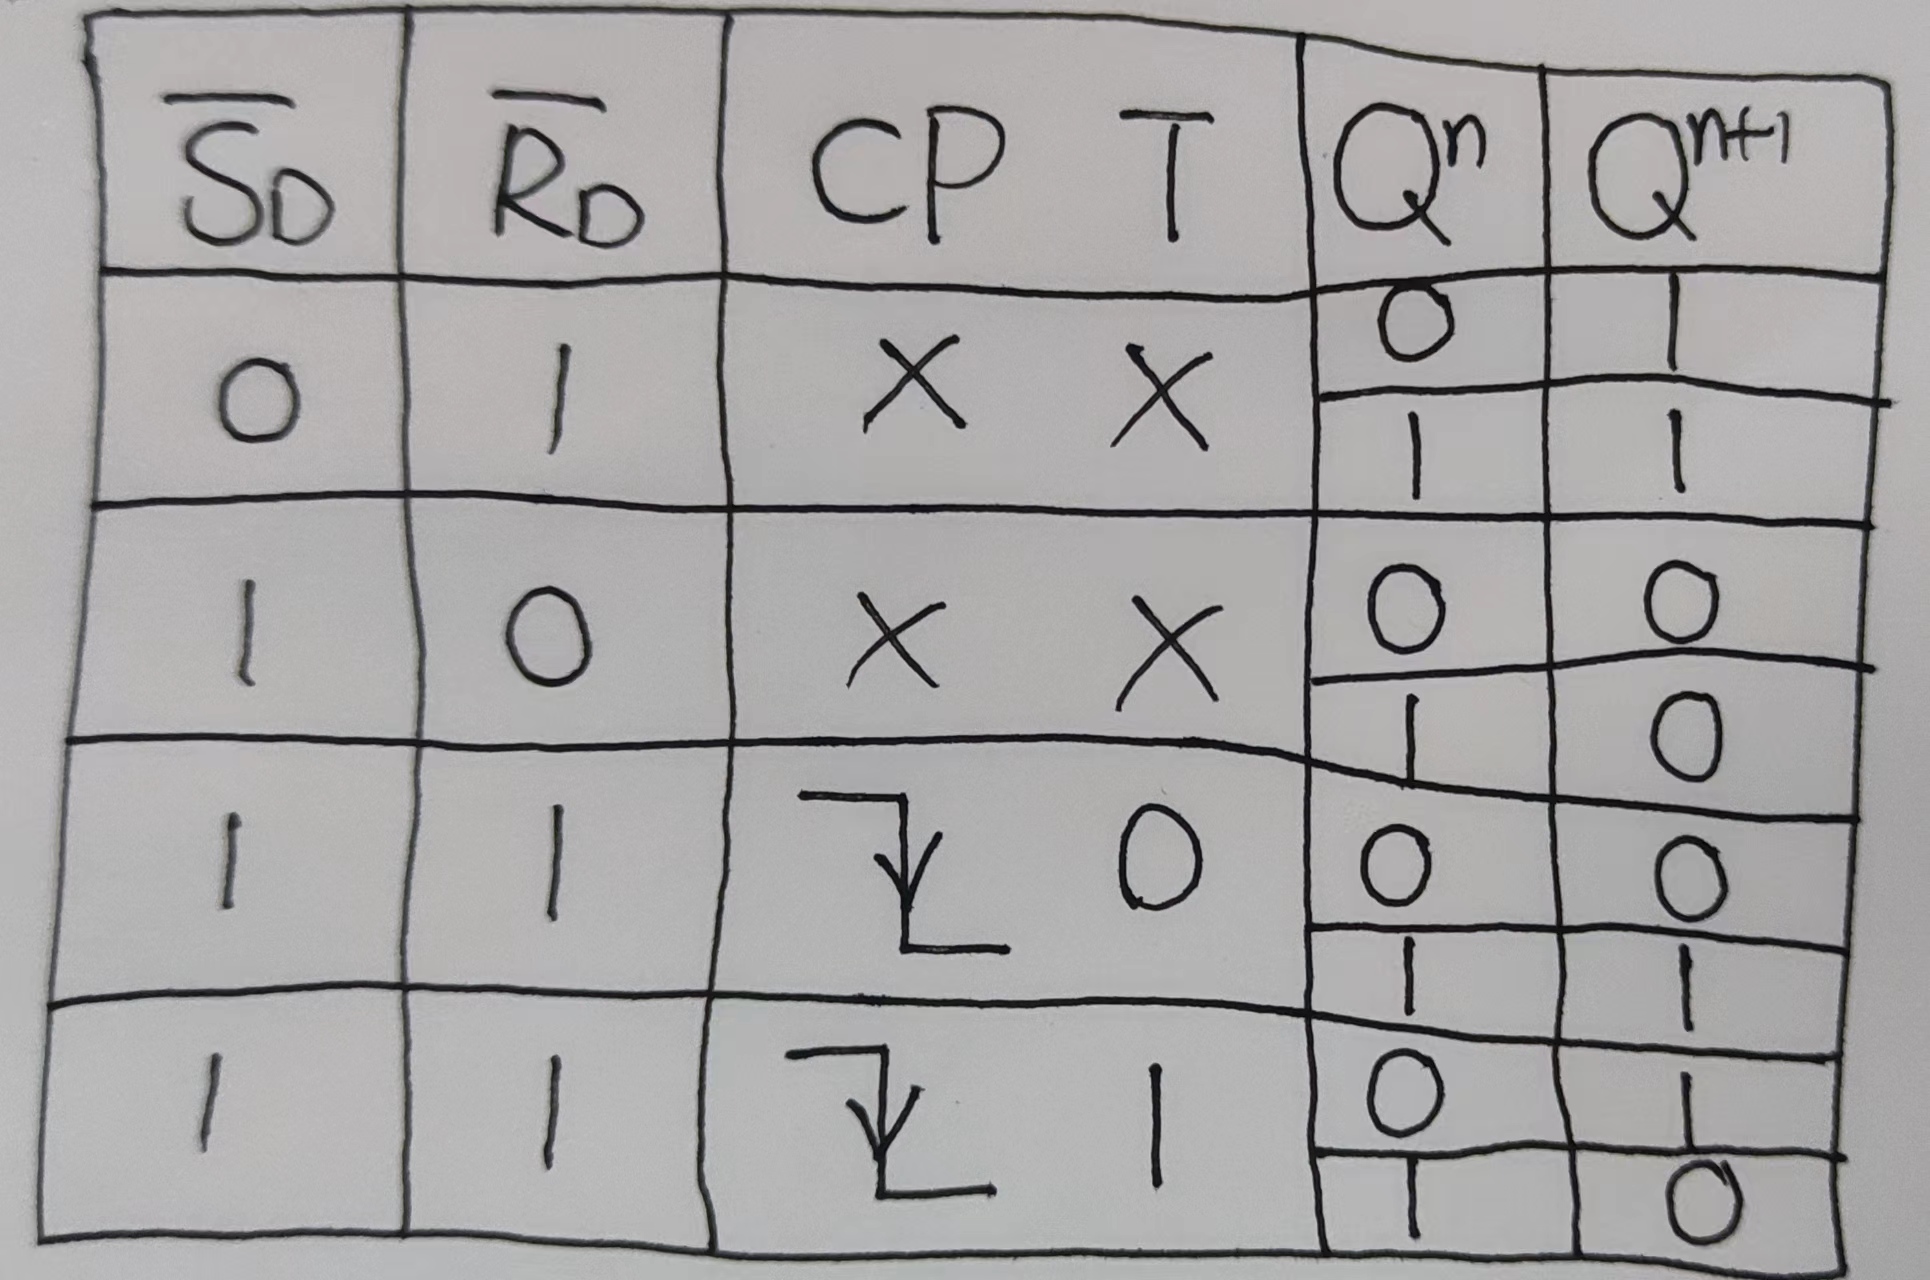 S̅D R̅D CP T Qⁿ Qⁿ⁺¹
0 1 X X 0 1
1 1
1 0 X X 0 0
1 0
1 1 0 0 0
1 1
1 1 1 0 1
1 0